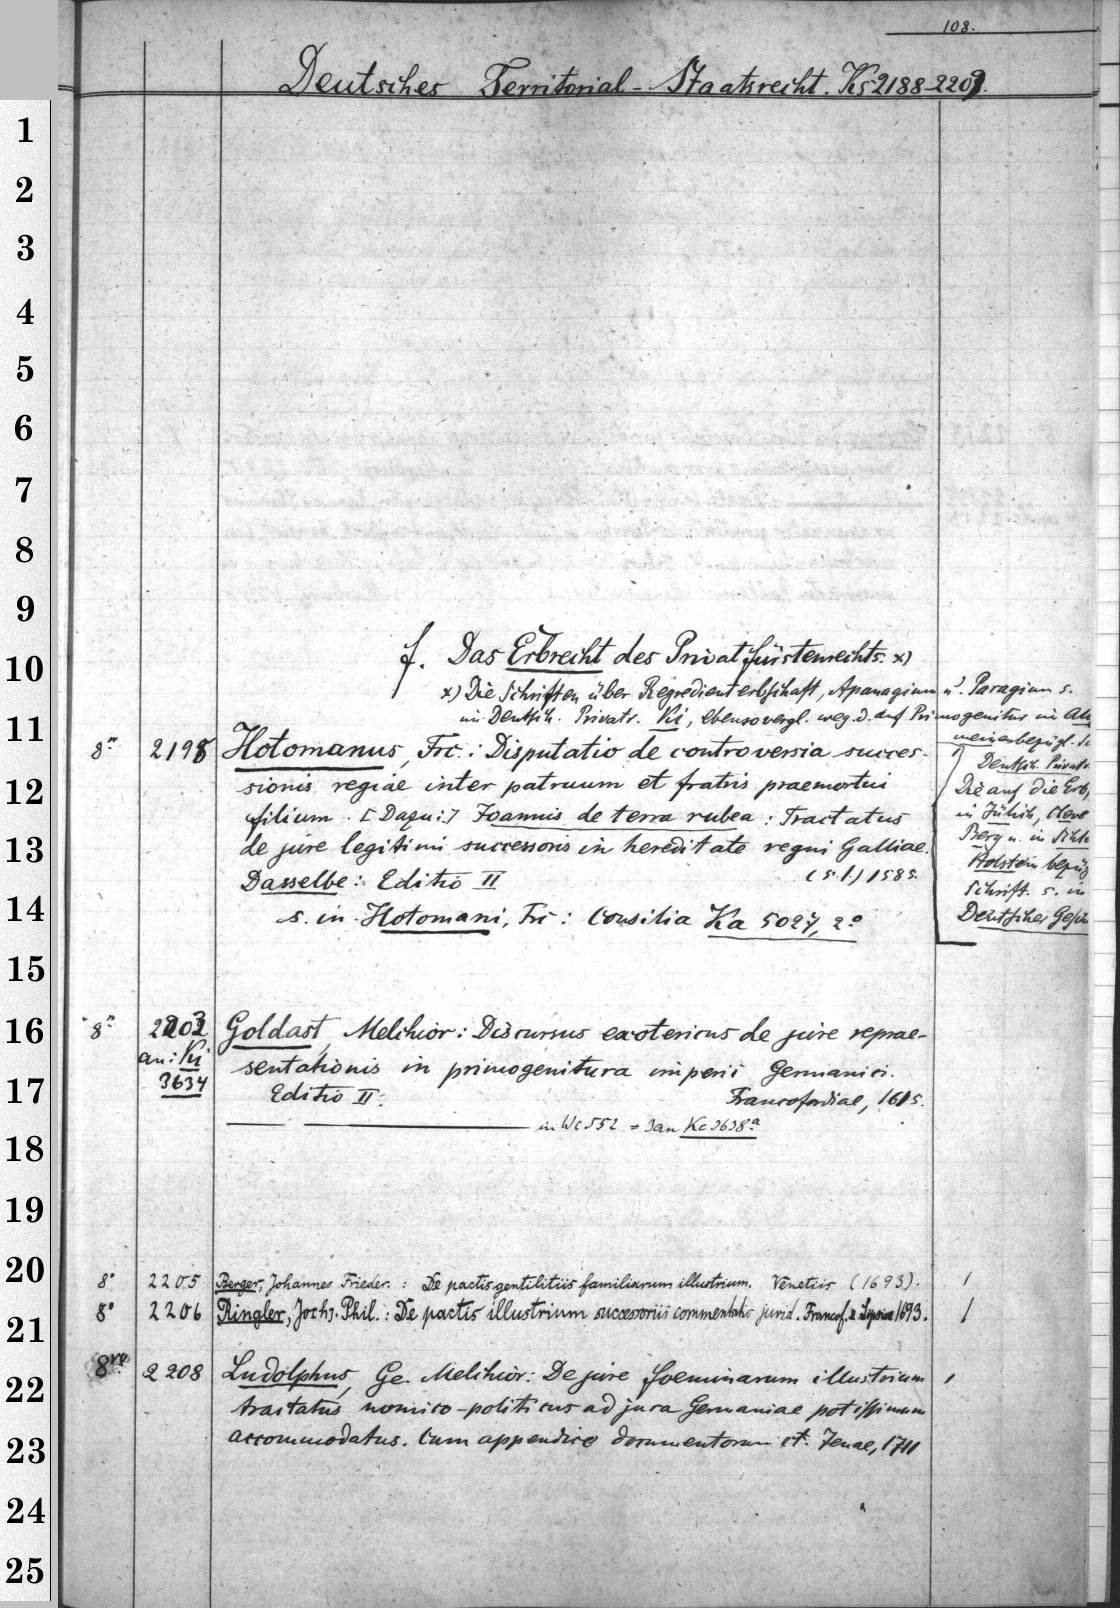 108.
Deutsches Territorial-Staatsrecht. Ks 2188-2209.
1
2
3
4
5
6
7
8
9
10
f. Das Erbrecht des Privatfürstenrechts. x)
x) Die Schriften über Regredienterbschaft, Apanagium u. Paragium s.
im Deutsch. Privatr. Ki, ebenso vergl. weg. d. auf Primogenitur im
11
8° 2198 Hotomanus, Frc.: Disputatio de controversia succes-
Deutsch. Privatr
12
sionis regiae inter patruum et fratris praemortui
Die auf die Erb,
filium. [Dazu:] Joannis de terra rubea: Tractatus
in Jülich, Cleve
13
de jure legitimi successoris in hereditate regni Galliae.
Berg u. in
Dasselbe: Editio II (s. l.) 1585.
Holstein bezüg
14
Schrift. s. in
s. in Hotomani, Frc: Consilia Ka 5027, 2°
Deutscher
15
16
8° 2202 Goldast, Melchior: Discursus exotericus de jure reprae-
an: Ki
3634
sentationis in primogenitura imperii Germanici.
17
Editio II. Francofordiae, 1615.
in Wc 552 = 3 an Kc 3638a
18
19
20
8° 2205 Berger, Johannes Frieder.: De pactis gentilitiis familiarum illustrium. Venetiis (1693). /
8° 2206 Ringler, Joch. Phil.: De pactis illustrium successoriis commentatio jurid. Francof. & Lipsiae 1693. /
21
22
8vo 2208 Ludolphus, Ge. Melchior: De jure foeminarum illustrium
tractatus nomico-politicus ad jura Germaniae potissimum
23
accommodatus. Cum appendice documentorum et. Jenae, 1711
24
25